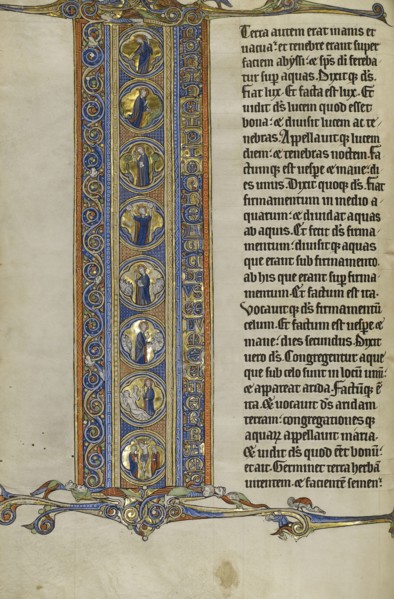 Terra autem erat inanis et
uacua: et tenebre erant super
faciem abyssi: et sp̄s dn̄i fereba-
tur sup̄ aquas. Dixit q; ds̄.
Fiat lux. Et facta est lux. Et
uidit ds̄ lucem quod esset
bona: et diuisit lucem ac te-
nebras. Appellauit q; lucem
diem: et tenebras noctem. Fa-
ctumq; est uespe et mane: di-
es unus. Dixit quoq; ds̄. Fiat
firmamentum in medio a-
quarum: et diuidat aquas
ab aquis. Et fecit ds̄ firma-
mentum: diuisitq; aquas
que erant sub firmamento.
ab his que erant sup̄ firma-
mentum. Et factum est ita.
Vocauit q; ds̄ firmamentū
celum. Et factum est uespe et
mane: dies secundus. Dixit
uero ds̄. Congregentur aque
que sub celo sunt in locū unū:
et appareat arida. Factūq; ē
ita. Et uocauit ds̄ aridam
terram: congregationes q;
aquarꝝ appellauit maria.
Et uidit ds̄ quod eēt bonū:
et ait. Germinet terra herbā
uirentem et facientē semen: